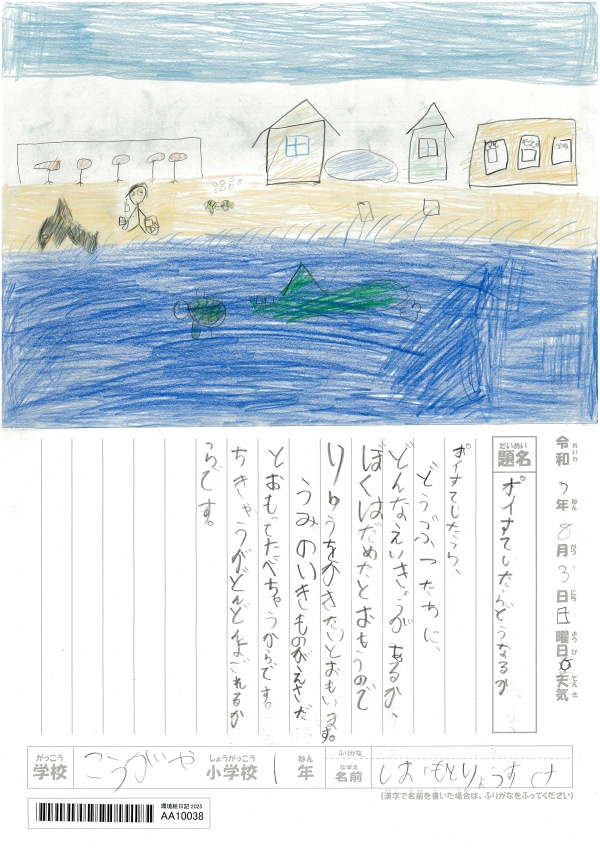 令和7年8月3日日曜日天気
れいわ ねん がつ にち ようび てんき
題名
だいめい
ポイすてしたらどうなるか
ポイすてしたら、
どうぶつたちに、
どんなえいきょうがあるか、
ぼくはだめだとおもうので
りゆうをかきたいとおもいます。
うみのいきものがえさだ
とおもってたべちゃうからです。
ちきゅうがどんどんよごれるか
らです。
がっこう しょうがっこう ねん
学校 こうがや 小学校 1年
ふりがな
なまえ
名前 しおもとりょうすけ
(漢字で名前を書いた場合は、ふりがなをふってください)
環境絵日記2025
AA10038